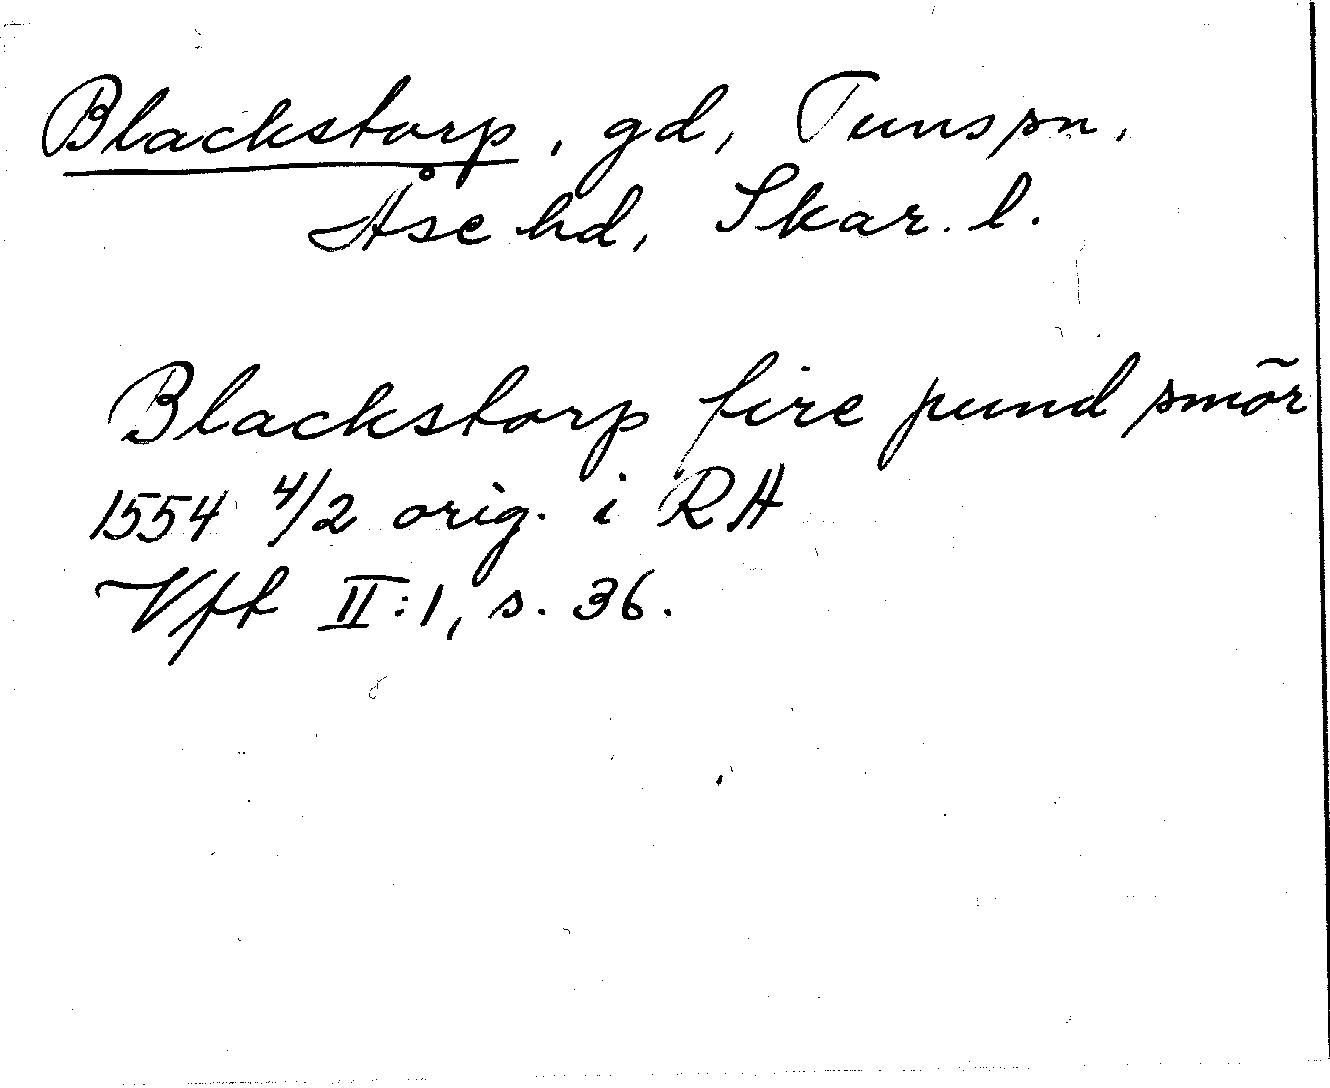 Blackstorp, gd, Tuns sn,
Åse hd, Skar. l.
Blackstorp fire pund smör
1554 4/2 orig. i RA
Vft II:1, s. 36.